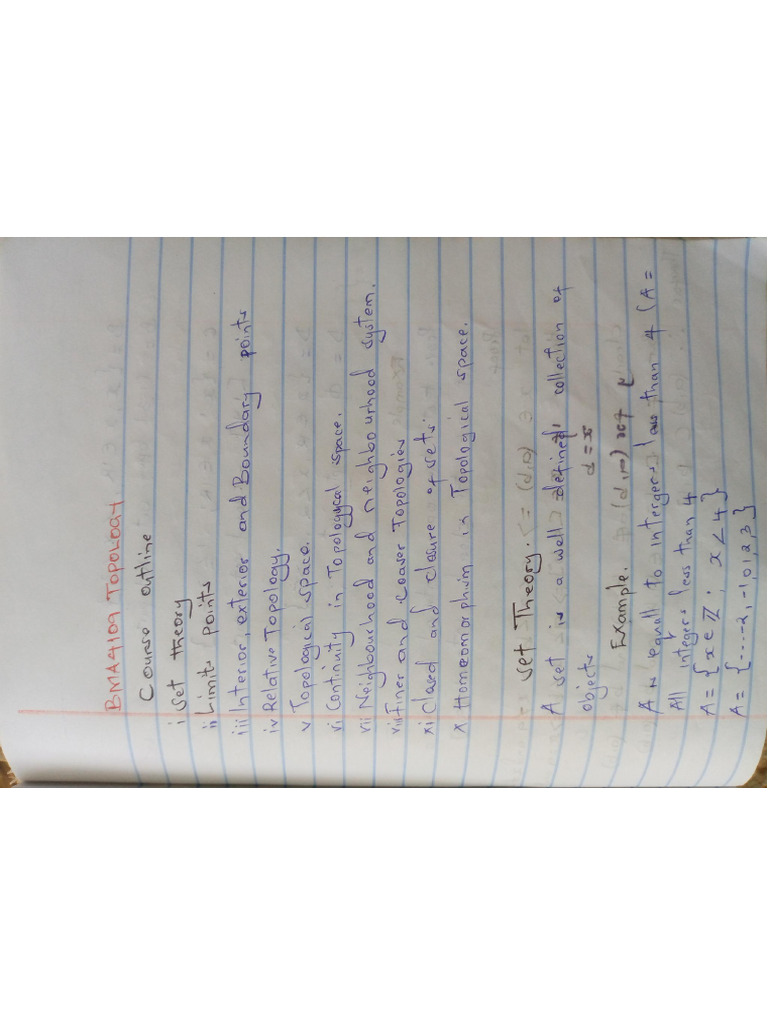 BMA4109 TOPOLOGY
Course outline
i Set theory
ii Limits points
iii Interior, exterior and Boundary points
iv Relative Topology.
v Topological space.
vi Continuity in Topological space.
vii Neighbourhood and neighbourhood system.
viii Finer and Coaser Topologies
xi Closed and closure of sets.
x Homeomorphism in Topological space.
Set Theory.
A set is a well defined collection of
objects
Example.
A is equal to intergers less than 4 (A =
All integers less than 4
A = {x ∈ ℤ : x < 4}
A = {...-2,-1,0,1,2,3}